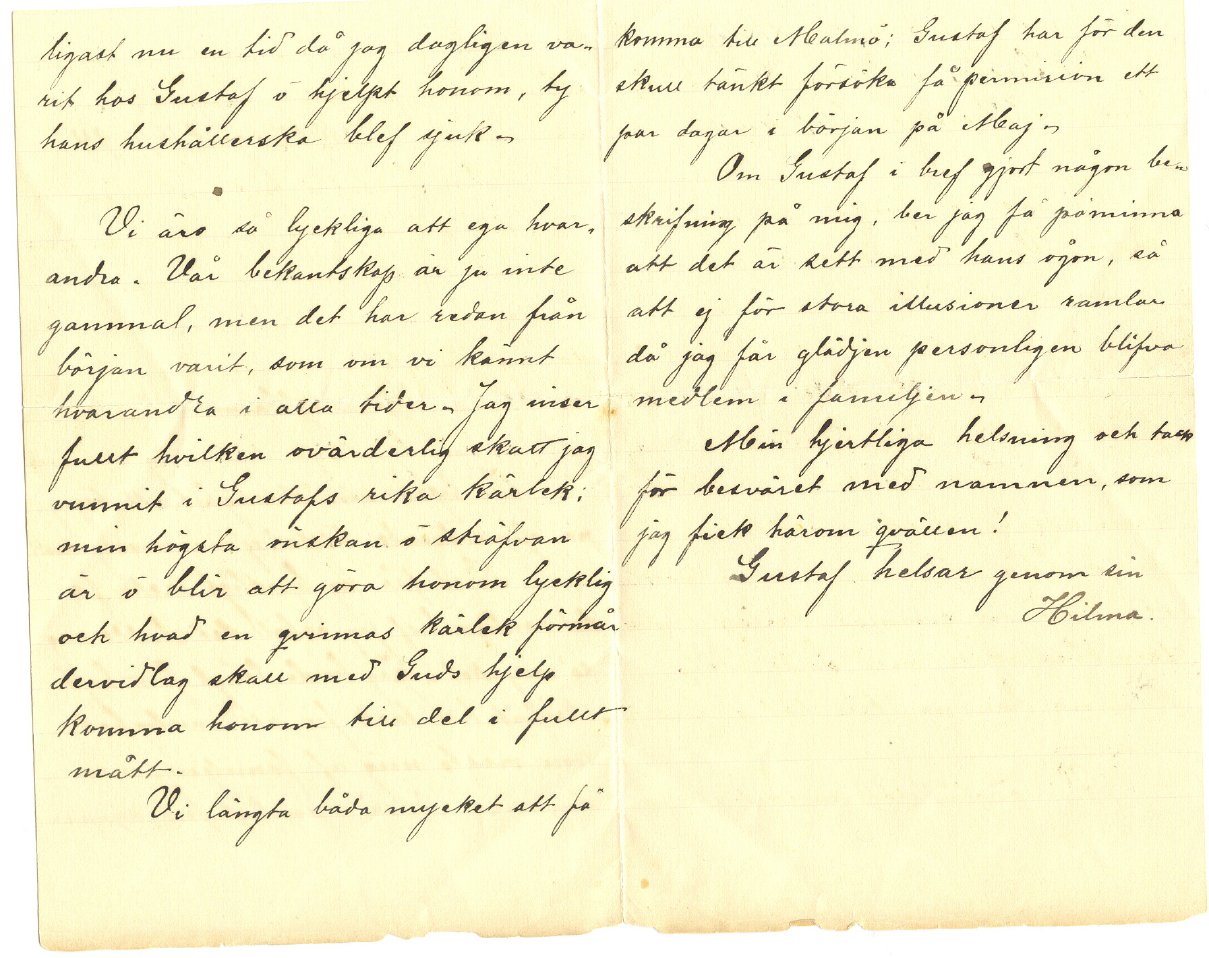 ligast nu en tid då jag dagligen va-
rit hos Gustaf o hjelpt honom, ty
hans hushållerska blef sjuk-
Vi äro så lyckliga att ega hvar-
andra. Vår bekantskap är ju inte
gammal, men det har redan från
början varit, som om vi kännt
hvarandra i alla tider- Jag inser
fullt hvilken ovärderlig skatt jag
vunnit i Gustafs rika kärlek;
min högsta önskan o sträfvan
är o blir att göra honom lycklig
och hvad en qvinnas kärlek förmår
dervidlag skall med Guds hjelp
komma honom till del i fullt
mått-
Vi längta båda mycket att få
komma till Malmö; Gustaf har för den
skull tänkt försöka få permision ett
par dagar i början på Maj-
Om Gustaf i bref gjort någon be-
skrifning på mig, ber jag få påminna
att det är sett med hans ögon, så
att ej för stora illusioner ramlar
då jag får glädjen personligen blifva
medlem i familjen-
Min hjertliga helsning och tack
för besväret med namnen, som
jag fick härom qvällen!
Gustaf helsar genom sin
Hilma.